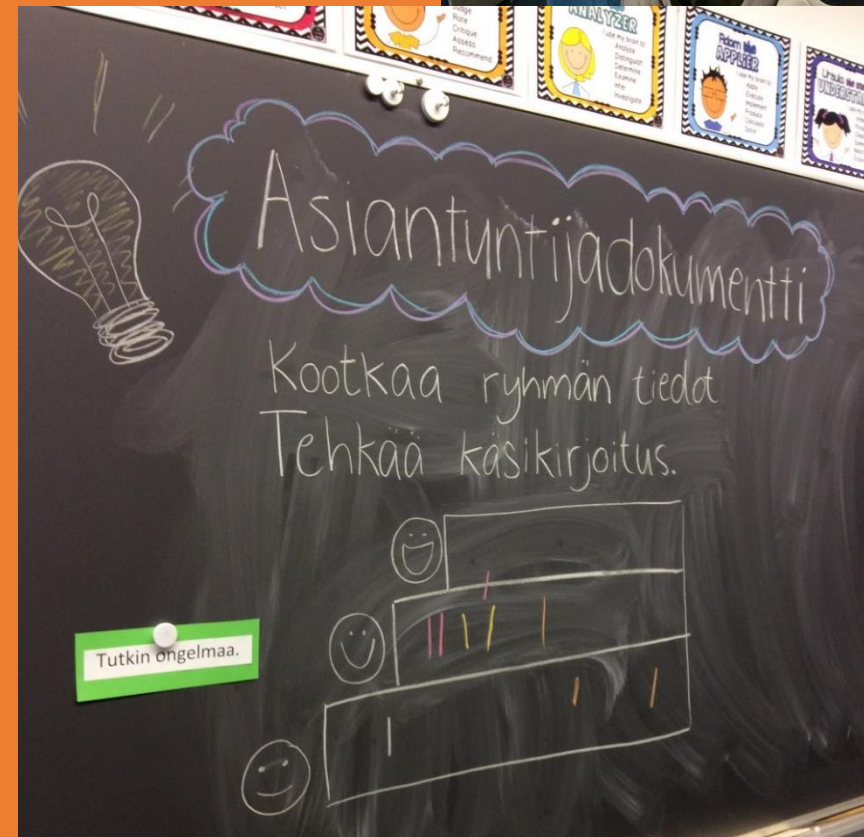 Judge
Rate
Critique
Assess
Recommend
ANALYZER
I use my brain to
Analyze
Distinguish
Determine
Examine
Infer
Investigate
Adam the
APPLIER
I use my brain to
Apply
Execute
Implement
Produce
Calculate
Solve
Ursula the
Asiantuntijadokumentti
Kootkaa ryhmän tiedot
Tehkää käsikirjoitus.
Tutkin ongelmaa.